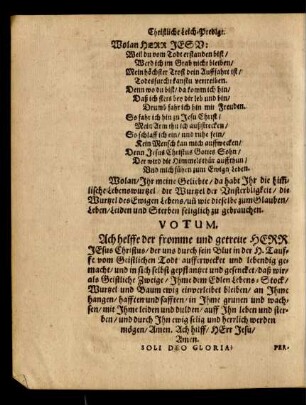 Christliche Leich-Predigt.
Wolan HERR JESU:
Weil du vom Todt erstanden bist/
Werd ich im Grab nicht bleiben/
Mein höchster Trost dein Auffahrt ist/
Todesfurcht kanstu vertreiben.
Denn wo du bist/ da komm ich hin/
Daß ich stets bey dir leb und bin/
Drumb fahr ich hin mit Freuden.
So fahr ich hin zu Jesu Christ/
Mein Arm thu ich außstrecken/
So schlaff ich ein/ und ruhe fein/
Kein Mensch kan mich auffwecken/
Denn Jesus Christus Gottes Sohn/
Der wird die Himmelsthür auffthun/
Und mich führen zum Ewign Leben.
Wolan/ Ihr meine Geliebte/ da habt Ihr die himm-
lische Lebenswurtzel/ die Wurtzel der Unsterbligkeit/ die
Wurtzel des Ewigen Lebens/ uñ wie dieselbe zum Glauben/
Leben/ Leiden und Sterben seliglich zu gebrauchen.
VOTUM,
Ach helffe der fromme und getreue HERR
JEsus Christus/ der uns durch sein Blut in der H. Tauf-
fe vom Geistlichen Todt aufferwecket und lebendig ge-
macht/ und in sich selbst gepflantzet und gesencket/ daß wir/
als Geistliche Zweige/ Ihme dem Edlen Lebens-Stock/
Wurtzel und Baum ewig einverleibet bleiben/ an Ihme
hangen/ hafften und safften/ in Ihme grunen und wach-
sen/ mit Ihme leiden und dulden/ auff Ihn leben und ster-
ben/ und durch Ihn ewig selig und herrlich werden
mögen/ Amen. Ach hülff/ HErr Jesu/
Amen.
SOLI DEO GLORIA.
PER-